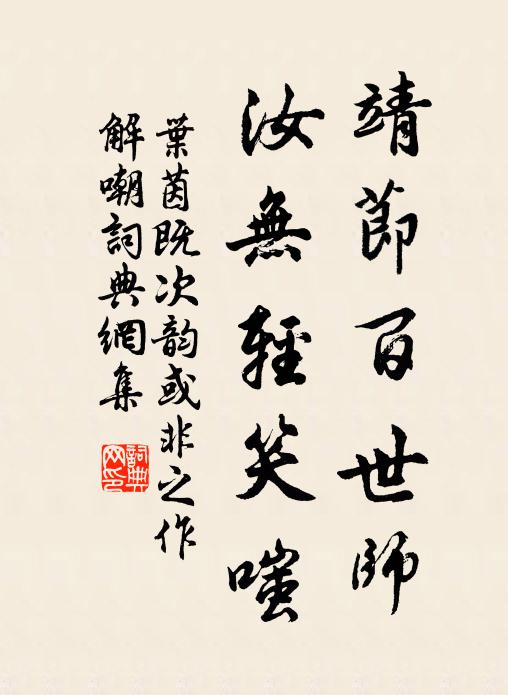 靖節百世師
汝無輕笑嗤
葉茵既次韵或非之作
解嘲詞典網集
詞典
网印